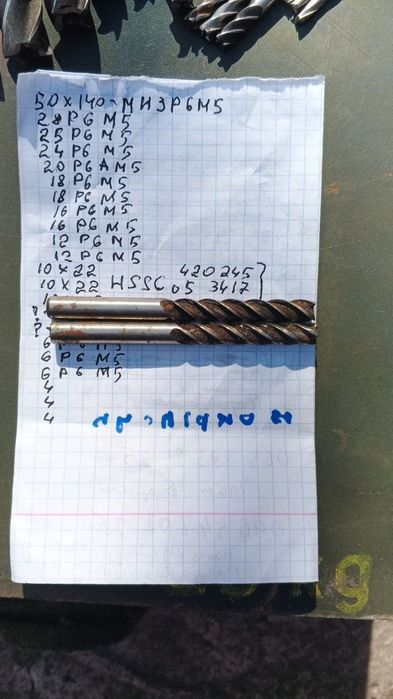 50 x 140 - МИЗ Р6М5
28 Р6 М5
25 Р6 М5
24 Р6 М5
20 Р6 АМ5
18 Р6 М5
18 Р6 М5
16 Р6 М5
16 Р6 М5
12 Р6 М5
12 Р6 М5
10 x 22 420 245
10 x 22 HSSC 05 3417
6 Р6 М5
6 Р6 М5
6 Р6 М5
4
4
4
кg